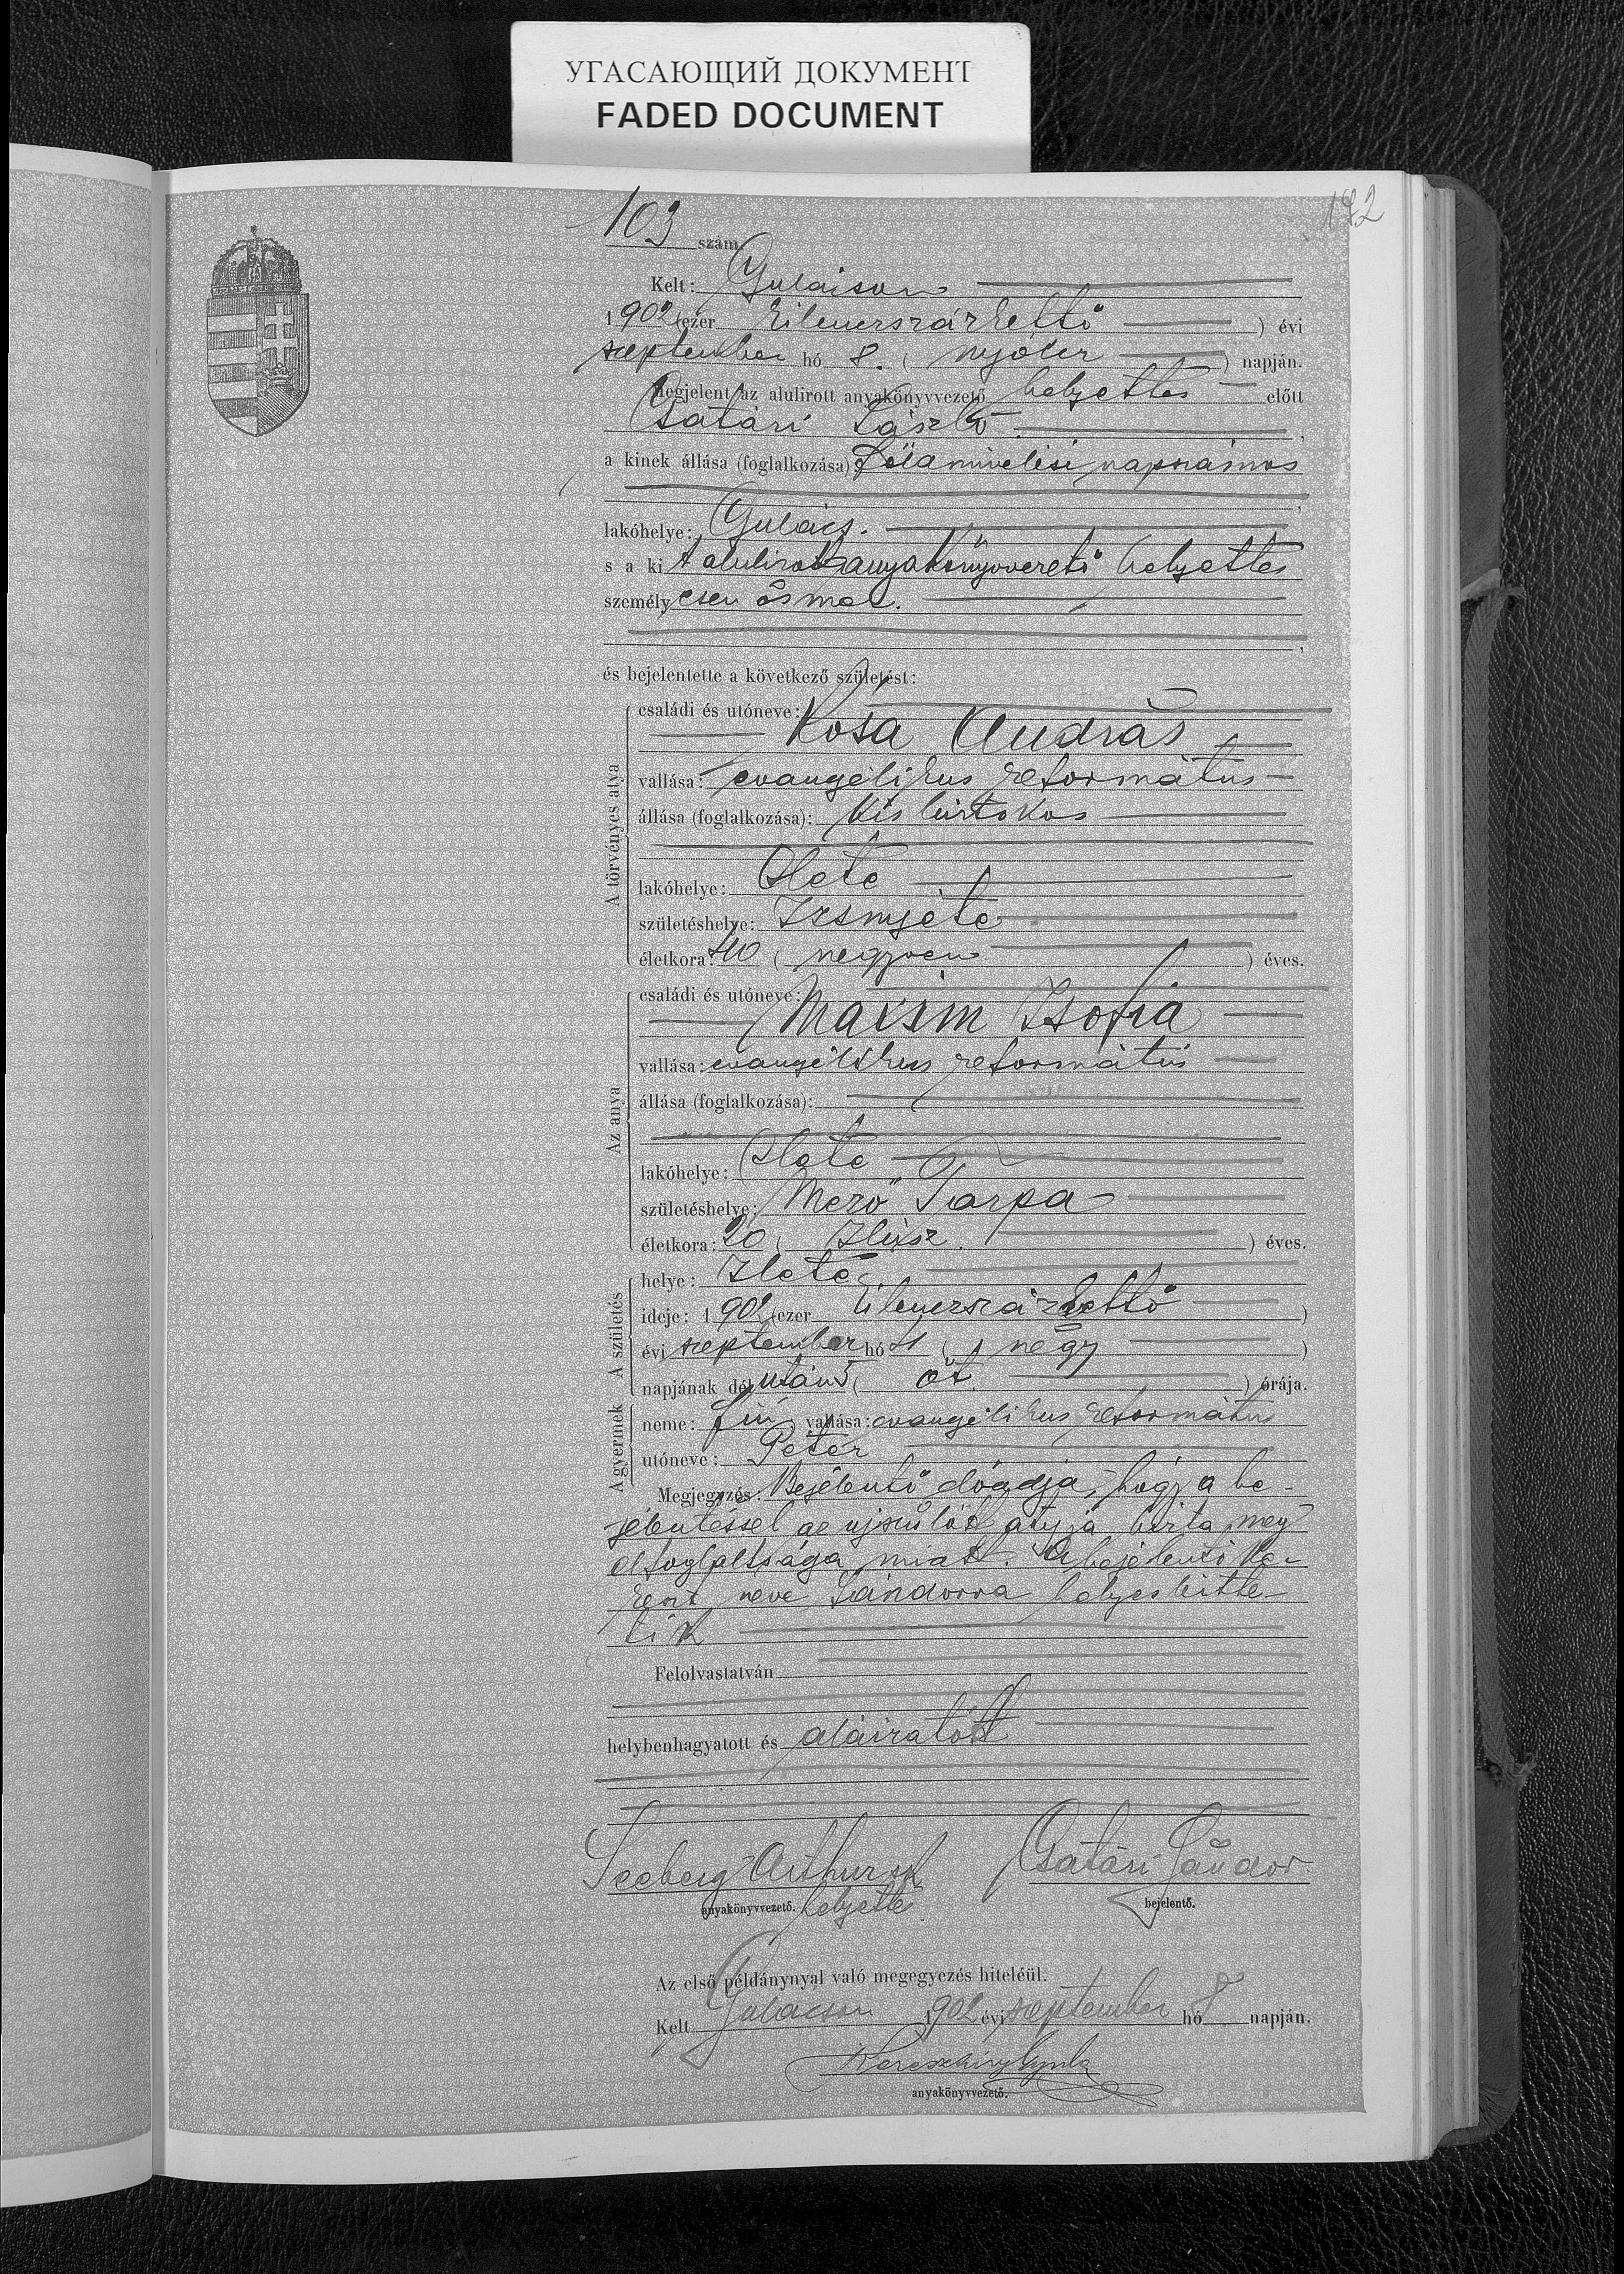 УГАСАЮЩИЙ ДОКУМЕНТ
FADED DOCUMENT
172
103 szám.
Kelt: Gulácson
1902 (ezer kilenczszázkettő) évi
szeptember hó 8. (nyolcz) napján.
Megjelent az alulirott anyakönyvvezető helyettes előtt
Csatári László
a kinek állása (foglalkozása): földmivelési napszámos
lakóhelye: Gulács.
s a kit alulirott anyakönyvvezető helyettes
személyesen ösmer.
és bejelentette a következő születést:
A törvényes atya
családi és utóneve:
Kósa András
vallása: evangélikus református
állása (foglalkozása): Kis birtokos
lakóhelye: Hete
születéshelye:
életkora: 40 (negyven) éves.
Az anya
családi és utóneve:
Maksim Zsofia
vallása: evangélikus református
állása (foglalkozása):
lakóhelye: Hete
születéshelye: Mező Tarpa
életkora: 20 (Husz) éves.
A születés
helye: Hete
ideje: 1902 (ezer kilenczszázkettő)
évi szeptember hó 4 (négy)
napjának délután 5 (öt) órája.
A gyermek
neme: fiú vallása: evangélikus református
utóneve: Péter
Megjegyzés: Bejelentő előadja, hogy a be-
jelentéssel az ujszülött atyja bizta meg
elfoglaltsága miatt. A bejelentő ke-
reszt neve Sándorra helyesbitte-
tik
Felolvastatván
helybenhagyatott és aláiratott
Seeberg Arthur
anyakönyvvezető. helyettes
Csatári Sándor
bejelentő.
Az első példánynyal való megegyezés hiteléül.
Kelt Gulácson 1902 évi szeptember hó 8 napján.
anyakönyvvezető.